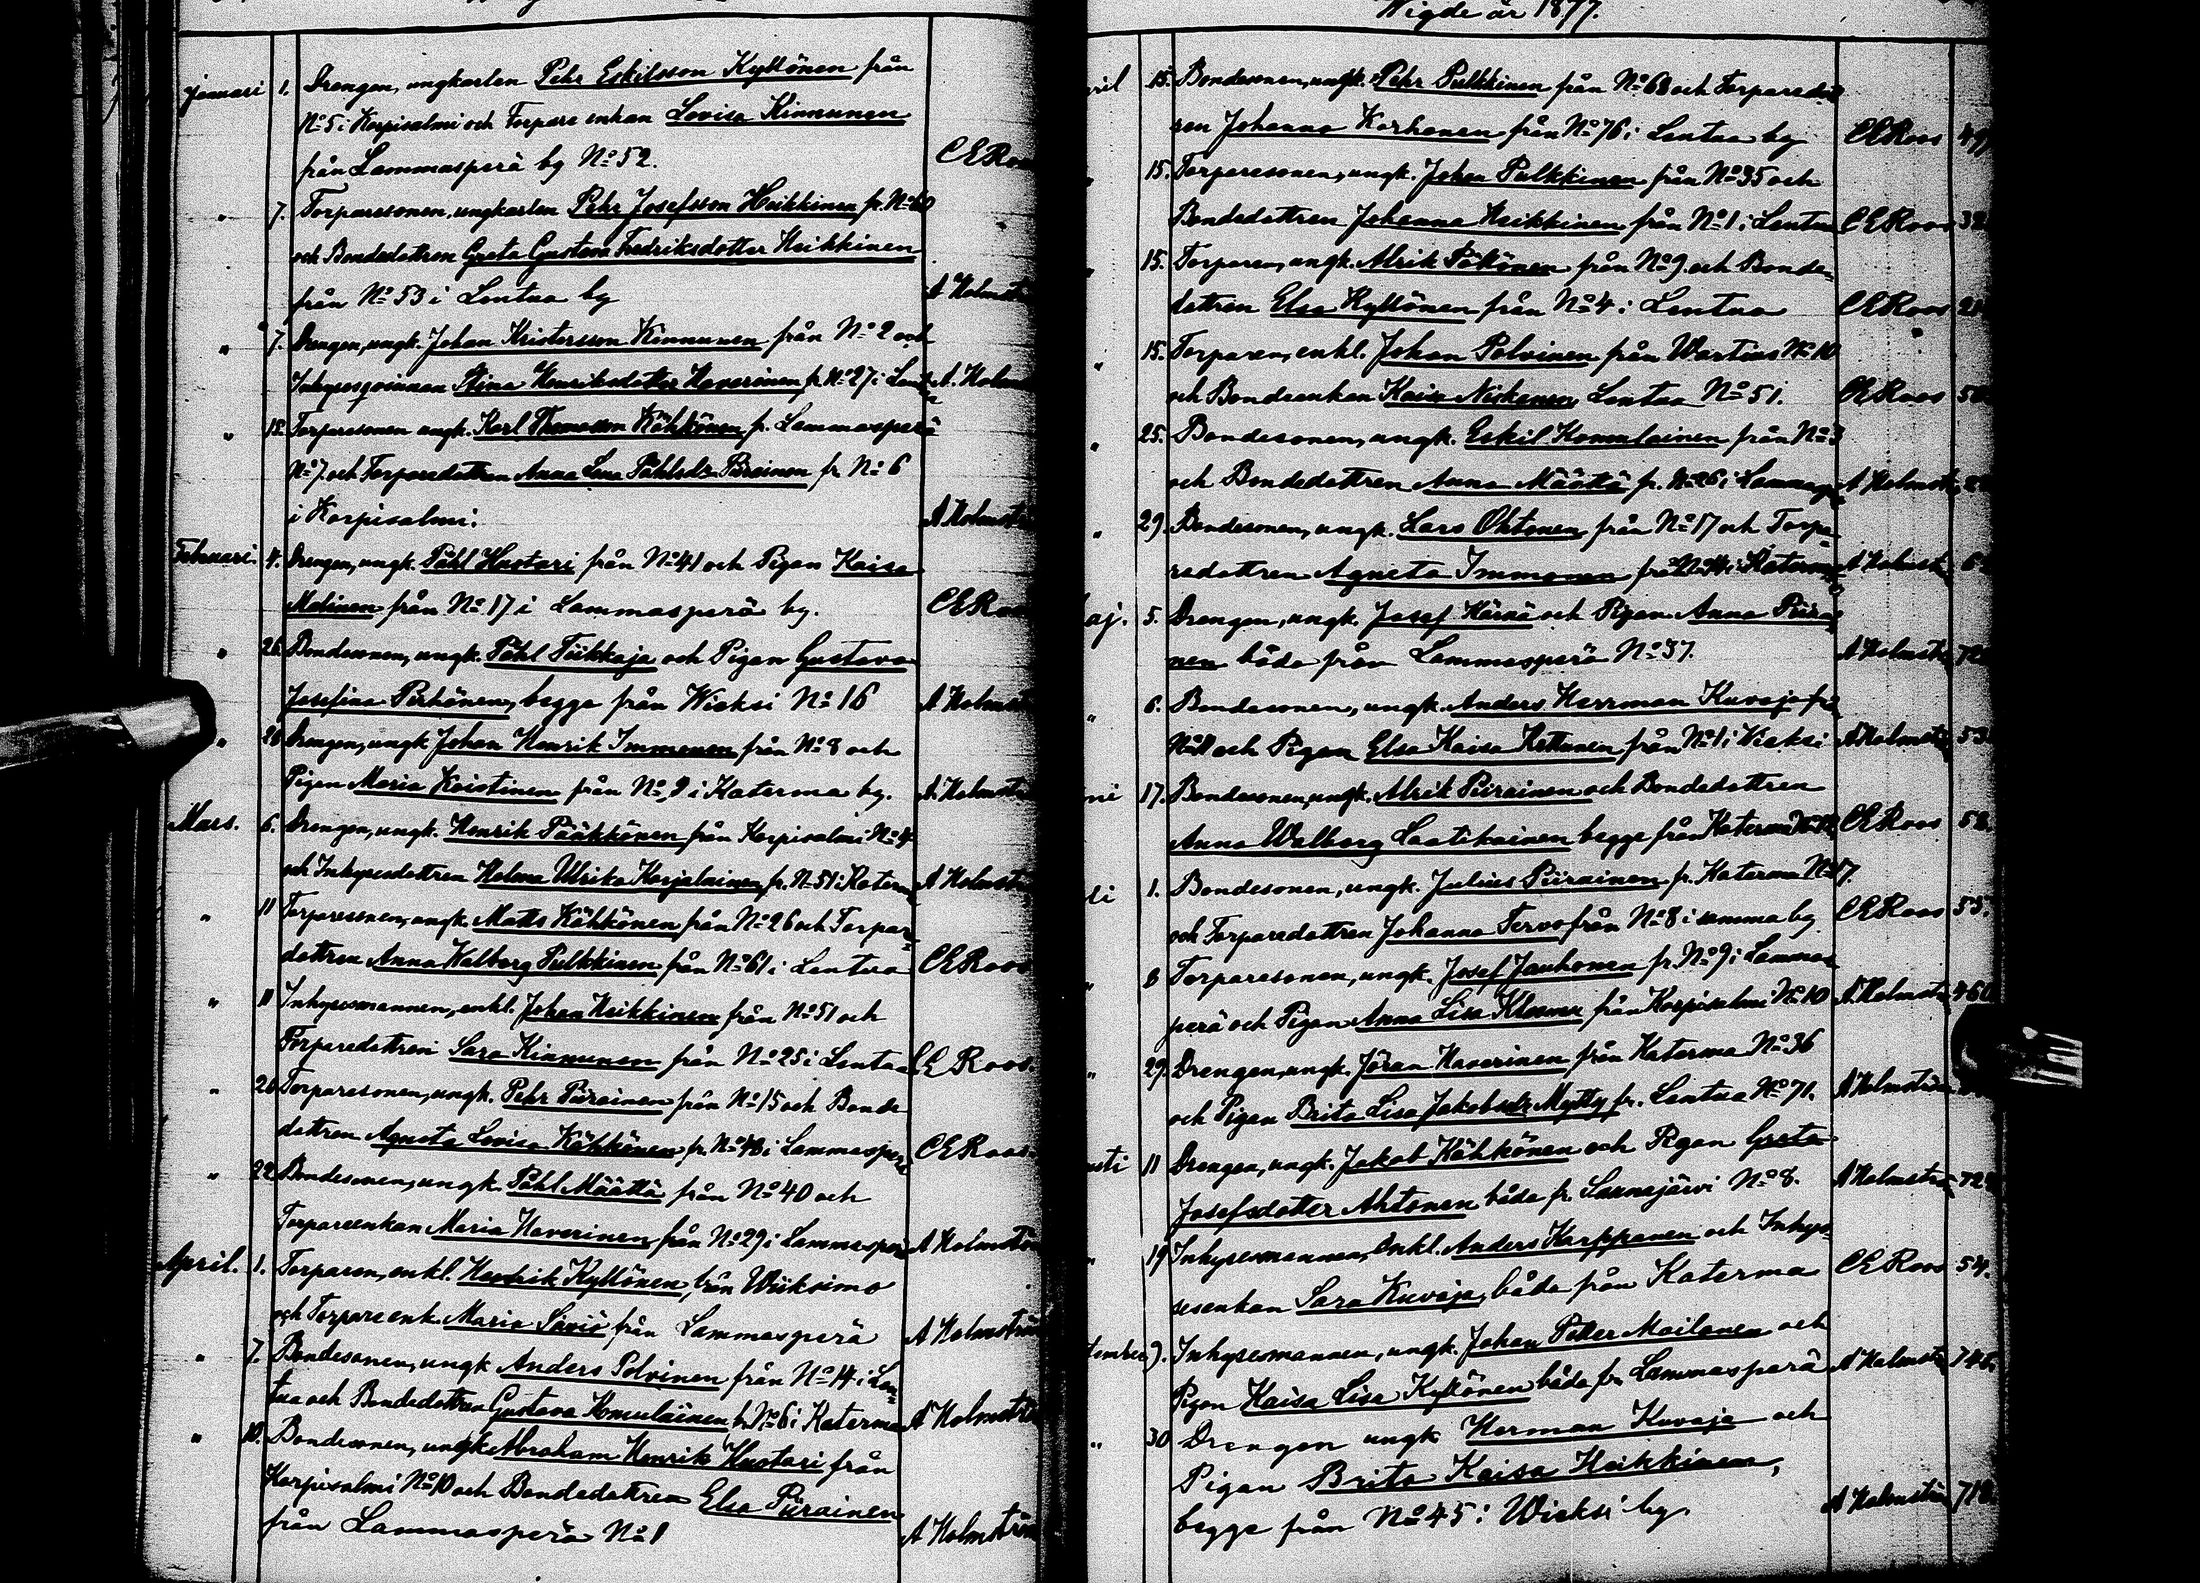 januari 1. Drengen, ungkarlen Pehr Eskilsson Kyllönen från
No 5 i Korpisalmi och Torpare enkan Lovisa Kinnunen
från Lammasperä by No 52. CE Roos
" 7. Torparesonen, ungkarlen Pehr Josefsson Heikkinen fr. No 60
och Bondedottren Greta Gustava Fredriksdotter Heikkinen
från No 53 i Lentua by A Holmström
" 7. Drengen, ungk. Johan Kristersson Kinnunen från No 2 och
Inhysesqvinnan Stina Henriksdotter Haverinen fr No 27 i Lentua A. Holmström
" Torparesonen ungk. Karl Thomasson Kähkönen fr. Lammasperä
No 7. och Torparedottren Anna Lena Påhlsdr Piirainen fr No 6
i Korpisalmi. A Holmström
Februari. 4. Drengen, ungk. Påhl Hustari från No 41 och Pigan Kaisa
Malinen från No 17 i Lammasperä by. CE Roos
" 26. Bondesonen, ungk. Påhl Tiikkaja och Pigan Gustava
Josefina Pirhönen, begge från Wieksi No 16 A Holmström
" Drengen, ungk Johan Henrik Immonen från No 8 och
Pigan Maria Kaistinen från No 9 i Katerma by. A. Holmström
Mars. 6. Drengen, ungk. Henrik Pääkkönen från Korpisalmi No 4
och Inhysesdottren Helena Ulrika Karjalainen fr. No 51 i Katerma A Holmström
" 11 Torparesonen, ungk. Matts Kähkönen från No 26 och Torpare-
dottren Anna Walborg Pulkkinen från No 61 i Lentua CE Roos
" 11 Inhysesmannen, enkl. Johan Heikkinen från No 51 och
Torparedottren Sara Kinnunen från No 25 i Lentua CE Roos.
" Torparesonen, ungk. Pehr Piirainen från No 15 och Bonde
dottren Agneta Lovisa Kähkönen fr. No 48 i Lammasperä CE Roos.
" 22 Bondesonen, ungk. Påhl Määttä från No 40 och
Torpareenkan Maria Haverinen från No 29 i Lammasperä A Holmström
April. 1. Torparen, enkl. Hendrik Kyllönen, från Wiiksimo
och Torpare enk. Maria från Lammasperä A Holmström
" 7. Bondesonen, ungk Anders Polvinen från No 14 i Len-
tua och Bondedottren Gustava Komulainen fr No 6 i Katerma A Holmström
" 10. Bondesonen, ungk Abraham Henrik Hustari från
Korpisalmi No 10 och Bondedottren Elsa Piirainen
från Lammasperä No 1 A Holmström
Wigde år 1877.
ril 15. Bondesonen, ungk. Pehr Pulkkinen från No 68 och Torparedot-
ren Johanna Korhonen från No 76 i Lentua by CE Roos 49
" 15. Torparesonen, ungk. Johan Pulkkinen från No 35 och
Bondedottren Johanna Heikkinen från No 1 i Lentua CE Roos
" 15. Torparen, ungk. Alrik Pölkönen från No 9. och Bonde-
dottren Elsa Kyllönen från No 4 i Lentua CE Roos
" 15. Torparen, enkl. Johan Polvinen från Wartius No 10
och Bondeenkan Kaisa Niskanen Lentua No 51. CE Roos
" 25. Bondesonen, ungk. Eskil Komulainen från No 3
och Bondedottren Anna Määttä fr. No 26 i Lammasp A Holmst
" 29. Bondesonen, ungk. Lars Ohtonen från No 17 och Torpa-
redottren Agneta Immonen från i Katerma A Holmst
aj. 5. Drengen, ungk. Josef Härmä och Pigan Anna Piirai-
nen båda från Lammasperä No 37. A Holmst
" 6. Bondesonen, ungk. Anders Herrman Kuvaja från
och Pigan Elsa Kaisa Kettunen från No 1 i Wieksi A Holmst 53
ni 17. Bondesonen, ungk. Alrik Piirainen och Bondedottren
Anna Walborg Laatikainen begge från Katerma CE Roos 58.
li 1. Bondesonen, ungk. Julius Piirainen fr. Katerma No 17.
och Torparedottren Johanna Tervo från No 8 i samma by CE Roos 55.
" 8 Torparesonen, ungk. Josef Jauhonen fr. No 9 i Lammas-
perä och Pigan Anna Lisa Klemner från Korpisalmi No 10 A Holmst 460
" 29. Drengen, ungk. Jöran Haverinen från Katerma No 36
och Pigan Brita Lisa Jakobsdr Mylly fr. Lentua No 71. A Holmström
usti 11 Drengen, ungk. Jakob Kähkönen och Pigan Greta
Josefsdotter Ahtonen båda fr. Saunajärvi No 8. A Holmström 72
" 19 Inhysesmannen, Enkl. Anders Karppanen och Inhys-
sesenkan Sara Kuvaja, båda från Katerma CE Roos 54.
tember 9. Inhysesmannen, ungk. Johan Petter Mailanen och
Pigan Kaisa Lisa Kyllönen båda fr. Lammasperä A Holmst 746.
" 30 Drengen ungk Herman Kuvaja och
Pigan Brita Kaisa Heikkinen,
begge från No 45 i Wieksi by. A Holmström 718.